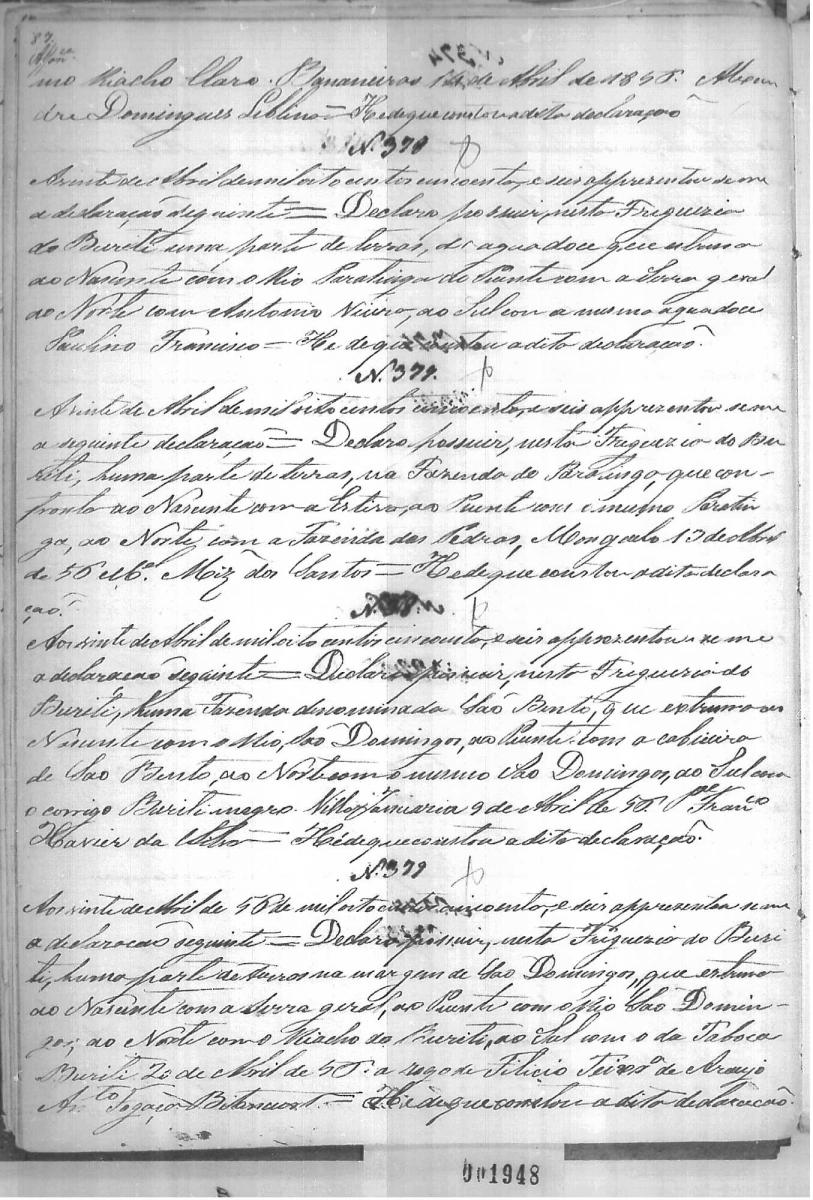 87.
mo Riacho Claro. Bananeiras 14 de Abril de 1856. Alexan
dre Domingues Leblino = He de que constou a dita declaração
N. 370
A vinte de Abril de mil oito centos cincoenta, e seis apprezentou se me
a declaração seguinte = Declaro possuir, nesta Freguezia
do Buriti uma parte de terras, d'agua doce que extrema
ao Nascente com o Rio Paratinga do Puente com a Serra geral
ao Norte com Antonio Vieira, ao Sul con a mesma agua doce
Paulino Francisco = He de que constou a dita declaração.
N. 371.
A vinte de Abril de mil oito centos cincoenta, e seis apprezentou se me
a seguinte declaração = Declaro possuir, nesta Freguezia do Bu
riti, huma parte de terras, na Fazenda do Paratinga, que con-
fronta ao Nascente com a Estiva, ao Puente com o mesmo Paratin
ga, ao Norte com a Fazenda das Pedras, Mongaelo 13 de Abril
de 56 Mel. Miz dos Santos = He de que constou a dita declara
ção.
N.
Aos vinte de Abril de mil oito centos cincoenta, e seis apprezentou se me
a declaração seguinte = Declaro possuir, nesta Freguezia do
Buriti, huma Fazenda denominada São Bento, que extrema ao
Nascente com o Rio São Domingos, ao Puente com a cabiceira
de São Bento, ao Norte com o mesmo São Domingos, ao Sul com
o corrigo Buriti negro. Villa Januaria 9 de Abril de 56. Pe Franco
Xavier da Silva = He de que constou a dita declaração.
N. 379
Aos vinte de Abril de 56 de mil oito centos cincoento, e seis apprezentou se me
a declaração seguinte = Declaro possuir, nesta Freguezia do Buri
ti, huma parte de terras na margem de São Domingos, que extrema
ao Nascente com a Serra geral, ao Puente com o Rio São Domin-
gos, ao Norte com o Riacho do Buriti, ao Sul com o da Taboca
Buriti 20 de Abril de 56. a rogo de Filicio Teixra de Araujo
Anto Fogaça Bitancurt = He de que constou a dita declaração.
001948